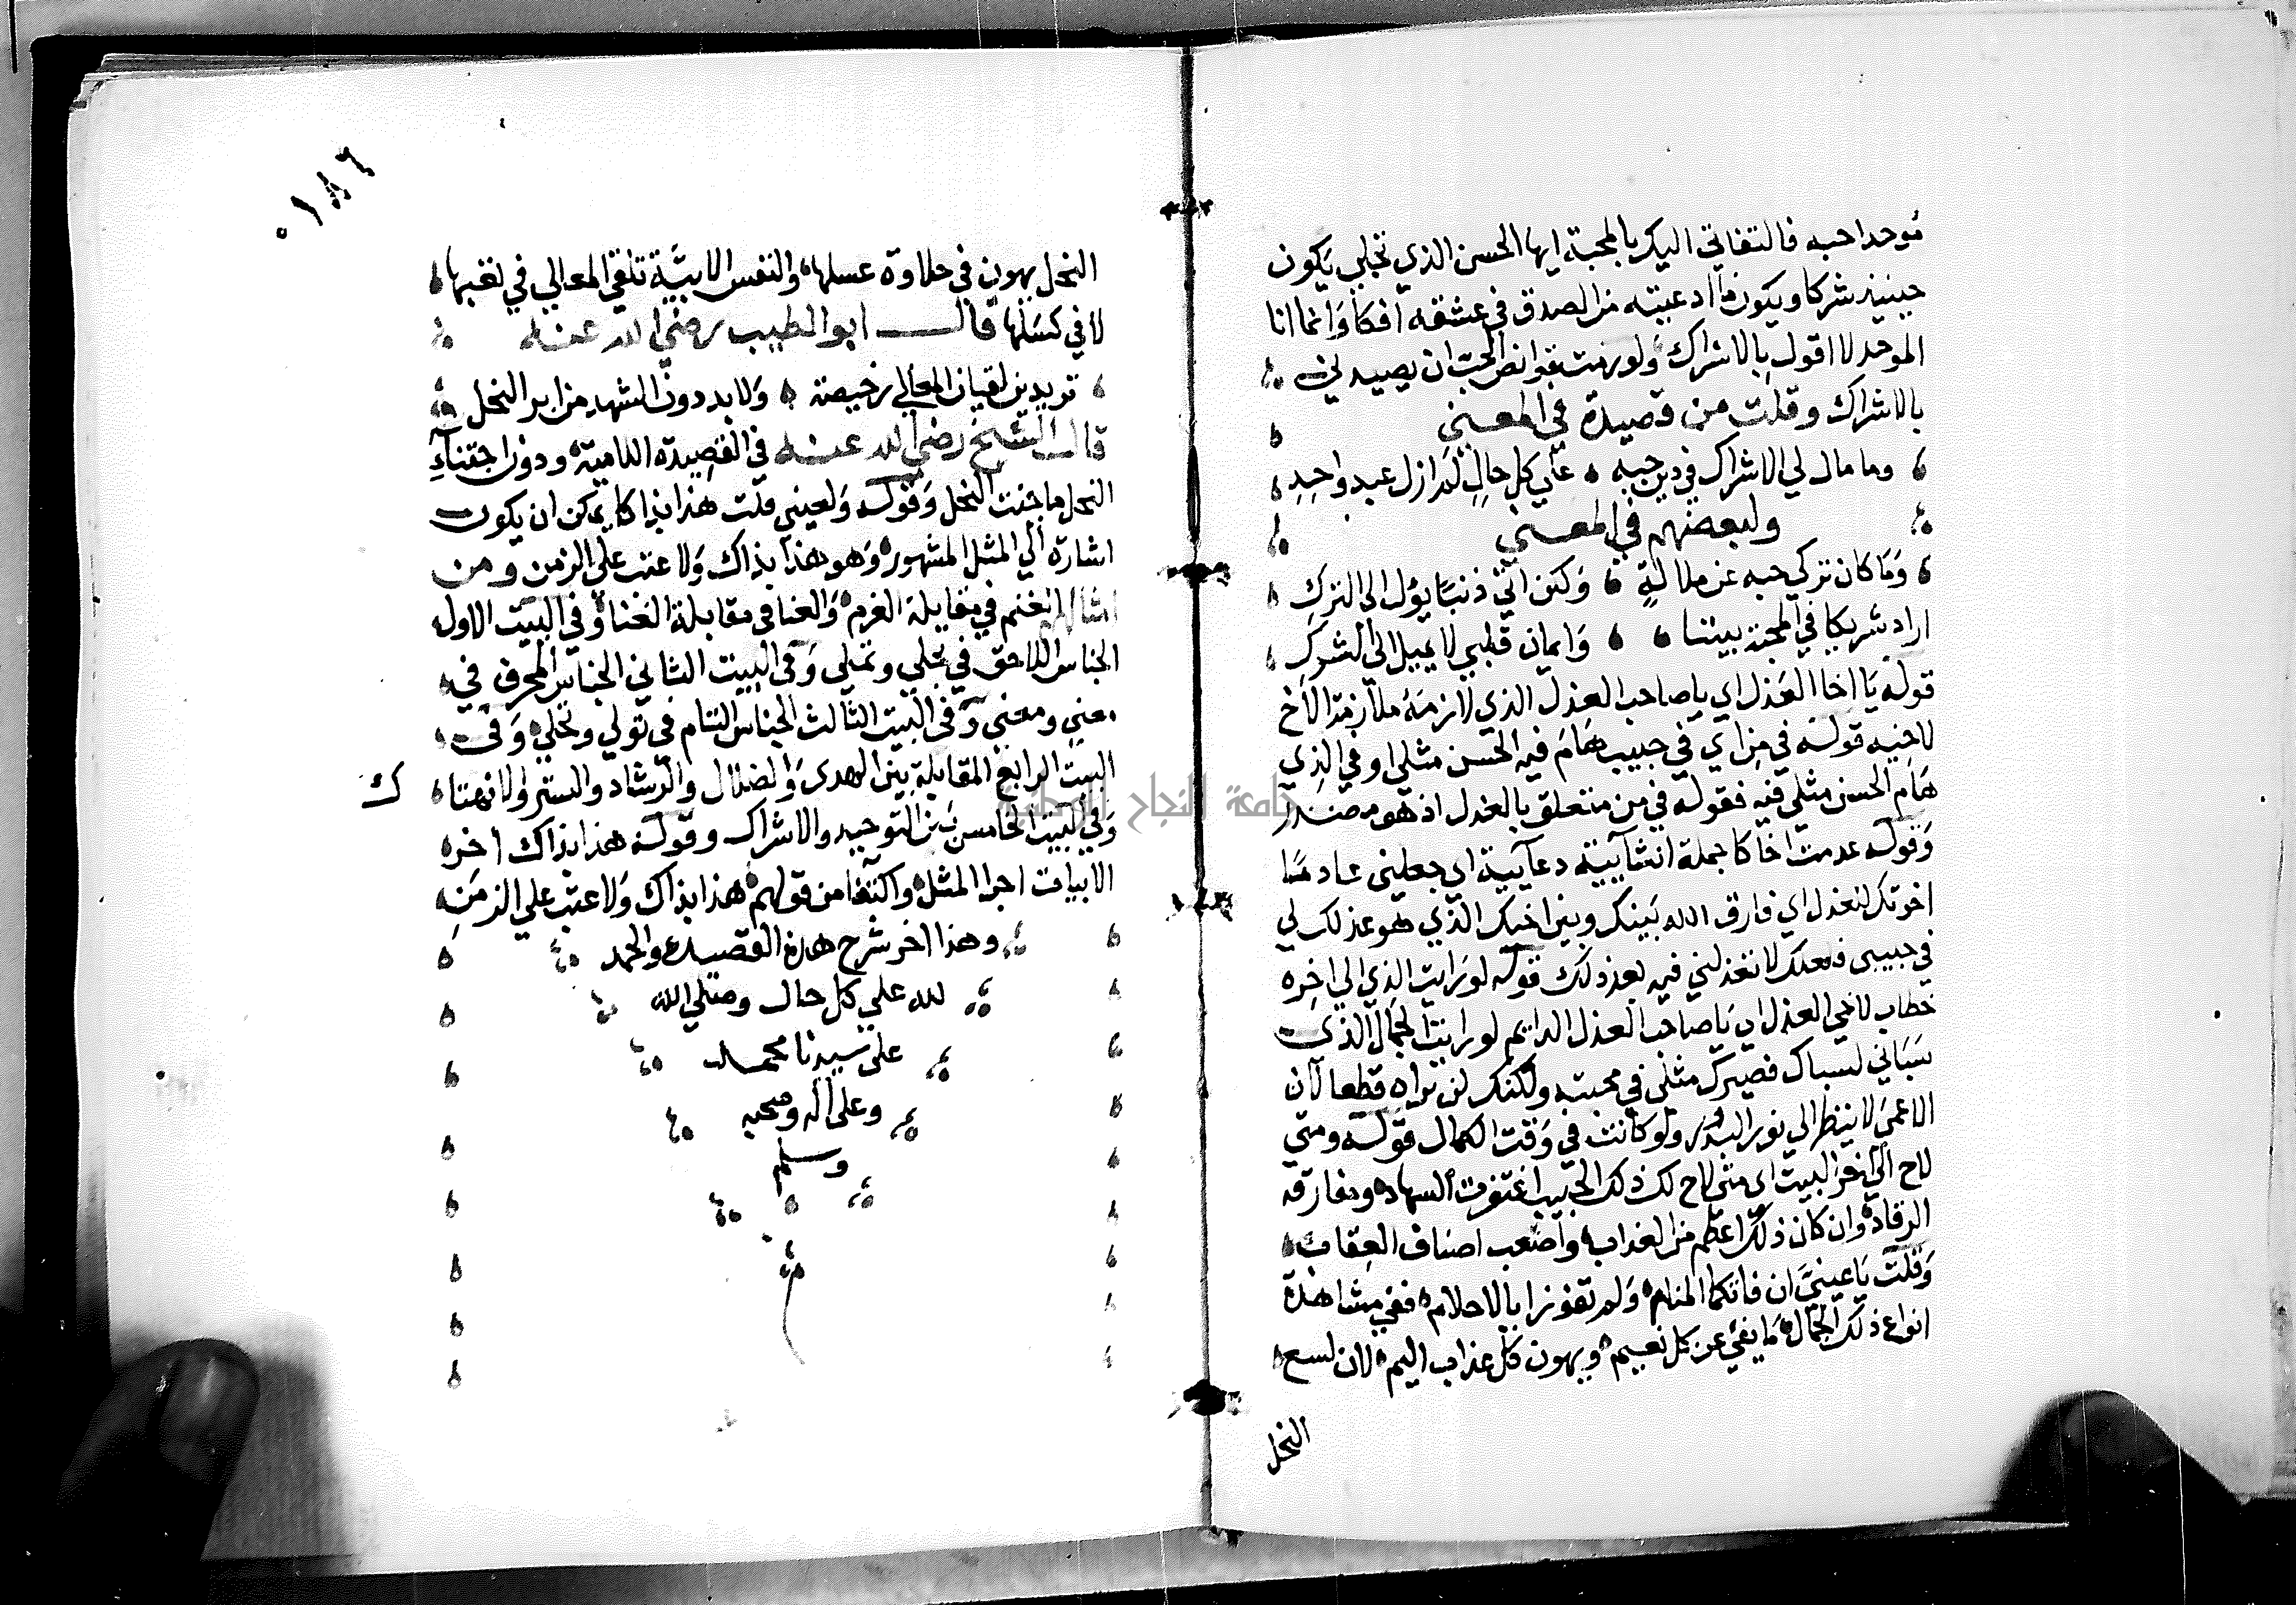 موحدا حبه فالتفاتي اليك بالمحبة ايها الحسن الذي تجلي يكون
حينيذ شركا ويكون ما ادعيته من الصدق في عشقه افكا وانما انا
الموحد لا اقول بالاشراك ولو رمت بقوانص الحب ان يصيد لي
بالاشراك وقلت من قصيدة في المعني
وما مال لي الاشراك في دين حبه علي كل حال لم ازل عبد واحد
ولبعضهم في المعني
وما كان تركي حبه عن ملالة ولكن اتي ذنبا يؤل الي الترك
اراد شريكا في المحبة بيننا وايمان قلبي لا يميل الي الشرك
قوله يا اخا العذل اي يا صاحب العذل الذي لازمه ملازمة الاخ
لاخيه قوله في من اي في حبيب هام فيه الحسن مثلي او في الذي
هام الحسن مثلي فيه فقوله في من متعلق بالعذل اذ هو مصدر
وقوله عدمت اخاكا جملة انشاييية دعاييية اي جعلني عادما
اخوتك للعذل اي فارق الله بينك وبين اخيك الذي هو عذلك لي
في حبيبي فلعلك لا تعذلني فيه بعد ذلك قوله لو رايت الذي الي اخره
خطاب لاخي العذل اي يا صاحب العذل الدايم لو رايت الجمال الذي
سباني لسباك فصيرك مثلي في محبته ولكنك لن تراه قطعا لان
الاعمي لا ينظر الي نور البدر ولو كانت في وقت الكمال قوله ومتي
لاح الي اخر البيت اي متي لاح لك ذلك الحبيب اغتفرت السهاد ومفارقة
الرقاد وان كان ذلك اعظم من العذاب واصعب اصناف العقاب
وقلت يا عيني ان فاتكما المنام ولم تفوزا بالاحلام ففي مشاهدة
انواع ذلك الجمال ما يغني عن كل نعيم ويهون كل عذاب اليم لان لسع
النحل
١٨٦
النحل يهون في حلاوة عسلها والنفس الابية تلقي المعالي في تعبها
لا في كسلها قال ابو الطيب رضي الله عنه
تريدين لقيان المعالي رخيصة ولا بد دون الشهد من ابر النحل
قال الشيخ رضي الله عنه في القصيدة اللامية ودون اجتناء
النحل ما جنت النحل وقوله ولعيني قلت هذا بذا كا يمكن ان يكون
اشارة الي المثل المشهور وهو هذا بذاك ولا عتب علي الزمن ومن
امثالهم الغنم في مقابلة الغرم والعنا في مقابلة الغنا وفي البيت الاول
الجناس اللاحق في تجلي وتملي وفي البيت الثاني الجناس المحرف في
معني ومعني وفي البيت الثالث الجناس التام في تولي وتخلي وفي
البيت الرابع المقابلة بين الهدي والضلال والرشاد والستر والانهتا
ك
وفي البيت الخامس بين التوحيد والاشراك وقوله هذا بذاك اخره
الابيات اجرا المثل واكتفا من قولهم هذا بذاك ولا عتب علي الزمن
وهذا اخر شرح هذه القصيدة والحمد
لله علي كل حال وصلي الله
علي سيدنا محمد
وعلي اله وصحبه
وسلم
جامعة النجاح الوطنية